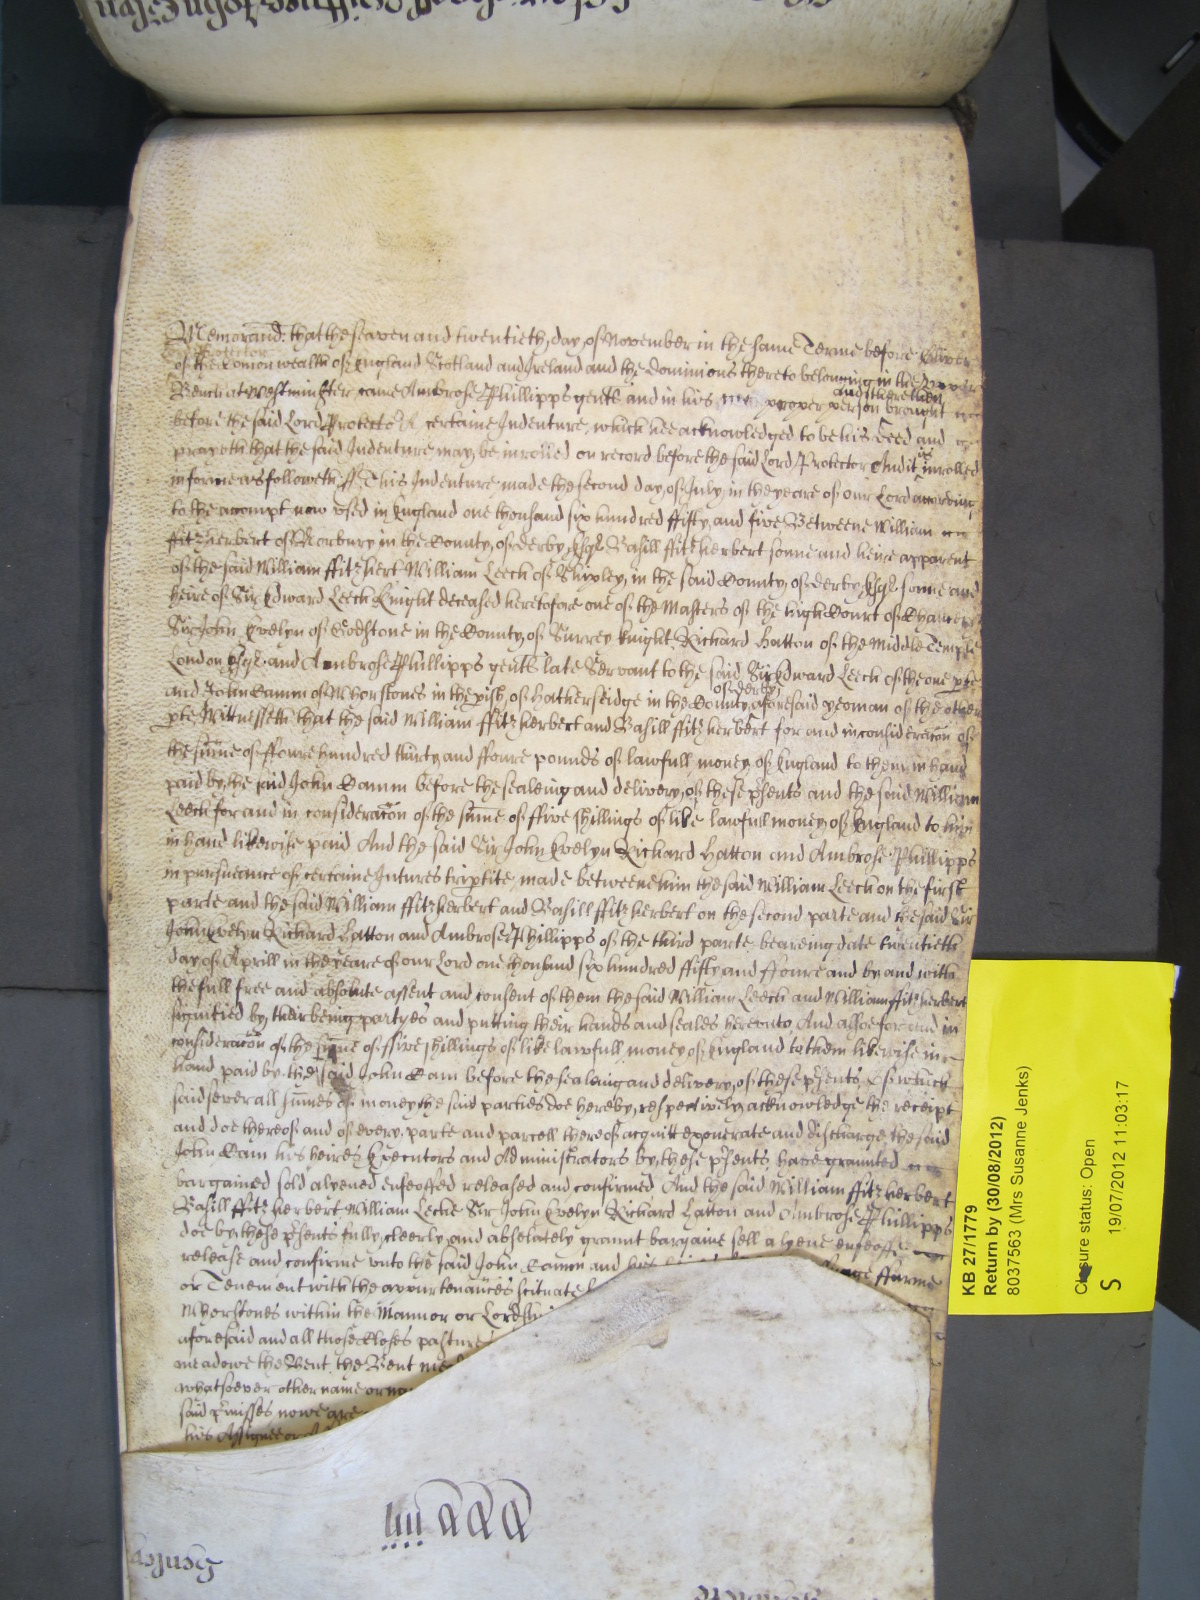 Memorand: that the seaven and twentieth day of November in the same Terme before Oliver
Protector
of the Comon wealth of England Scotland and Ireland and the dominions thereto belonging in the Upper
and there then
Bench at Westminster came Ambrose Phillipps gent and in his proper person brought
before the said Lord Protector A certaine Indenture, which hee acknowledged to be his deed and
prayeth that the said Indenture may be inrolled on record before the said Lord Protector And it is inrolled
in forme as followeth ss This Indenture made the second day of July in the yeare of our Lord according
to the accompt now used in England one thousand six hundred ffifty and five Betweene William
ffitzherbert of Norbury in the County of derby Esqr Basill ffitzherbert sonne and heire apparent
of the said William ffitzhert William Leech of Shipley in the said County of derby Esqr sonne and
heire of Sir Edward Leech Knight deceased heretofore one of the Masters of the high Court of Chancery
Sir John Evelyn of Godstone in the County of Surrey knight Richard Hatton of the Middle Temple
London Esqr and Ambrose Phillipps gent late Servant to the said Sir Edward Leech of the one pte
of derby
and John Camm of Mhorstones in the pish of Hatherseidge in the County aforesaid yeoman of the other
pte Wittnesseth that the said William ffitzherbert and Basill ffitzherbert for and in consideracon of
the sume of ffoure hundred thirty and ffoure pounds of lawfull money of England to them in hand
paid by the said John Camm before the sealeing and delivery of these psents and the said William
Leech for and in consideracon of the sume of ffive shillings of like lawfull money of England to him
in hand likewise paid And the said Sir John Evelyn Richard Hatton and Ambrose Phillipps
in pursuance of certaine Intures triptite, made betweene him the said William Leech on the first
parte and the said William ffitzherbert and Basill ffitzherbert on the second parte and the said Sir
John Evelyn Richard Hatton and Ambrose Phillipps of the third parte, beareing date twentieth
day of Aprill in the yeare of our Lord one thousand six hundred ffifty and ffoure and by and with
the full free and absolute assent and consent of them the said William Leech and William ffitzherbert
signified by their being partyes and putting their hands and seales hereunto, And alsoe for and in
consideracon of the sume of ffive shillings of like lawfull money of England to them likewise in
hand paid by the said John Cam before the sealeing and delivery of these psents, Of which
said severall sumes of money the said parties doe hereby respectively acknowledge the receipt
and doe thereof and of every parte and parcell thereof acquitt exonerate and discharge the said
John Cam his heires Executors and Administrators by these psents, have graunted
bargained sold alyened enfeoffed released and confirmed And the said William ffitzherbert
Basill ffitzherbert William Leche Sir John Evelyn Richard Hatton and Ambrose Phillipps
doe by these psents fully cleerly and absolutely graunt bargaine sell alyene enfeoffe
release and confirme unto the said John Camm and his ffarme
or Tenement with the appurtenances scituate
Mhorstones within the Mannor or Lordshi
aforesaid and all those Closes pasture
meadowe the Bent, the Bent
whatsoever other name or na
said pmisses nowe are
his Assignee or
KB 27/1779
Return by (30/08/2012)
8037563 (Mrs Susanne Jenks)
Closure status: Open
S 19/07/2012 11:03:17